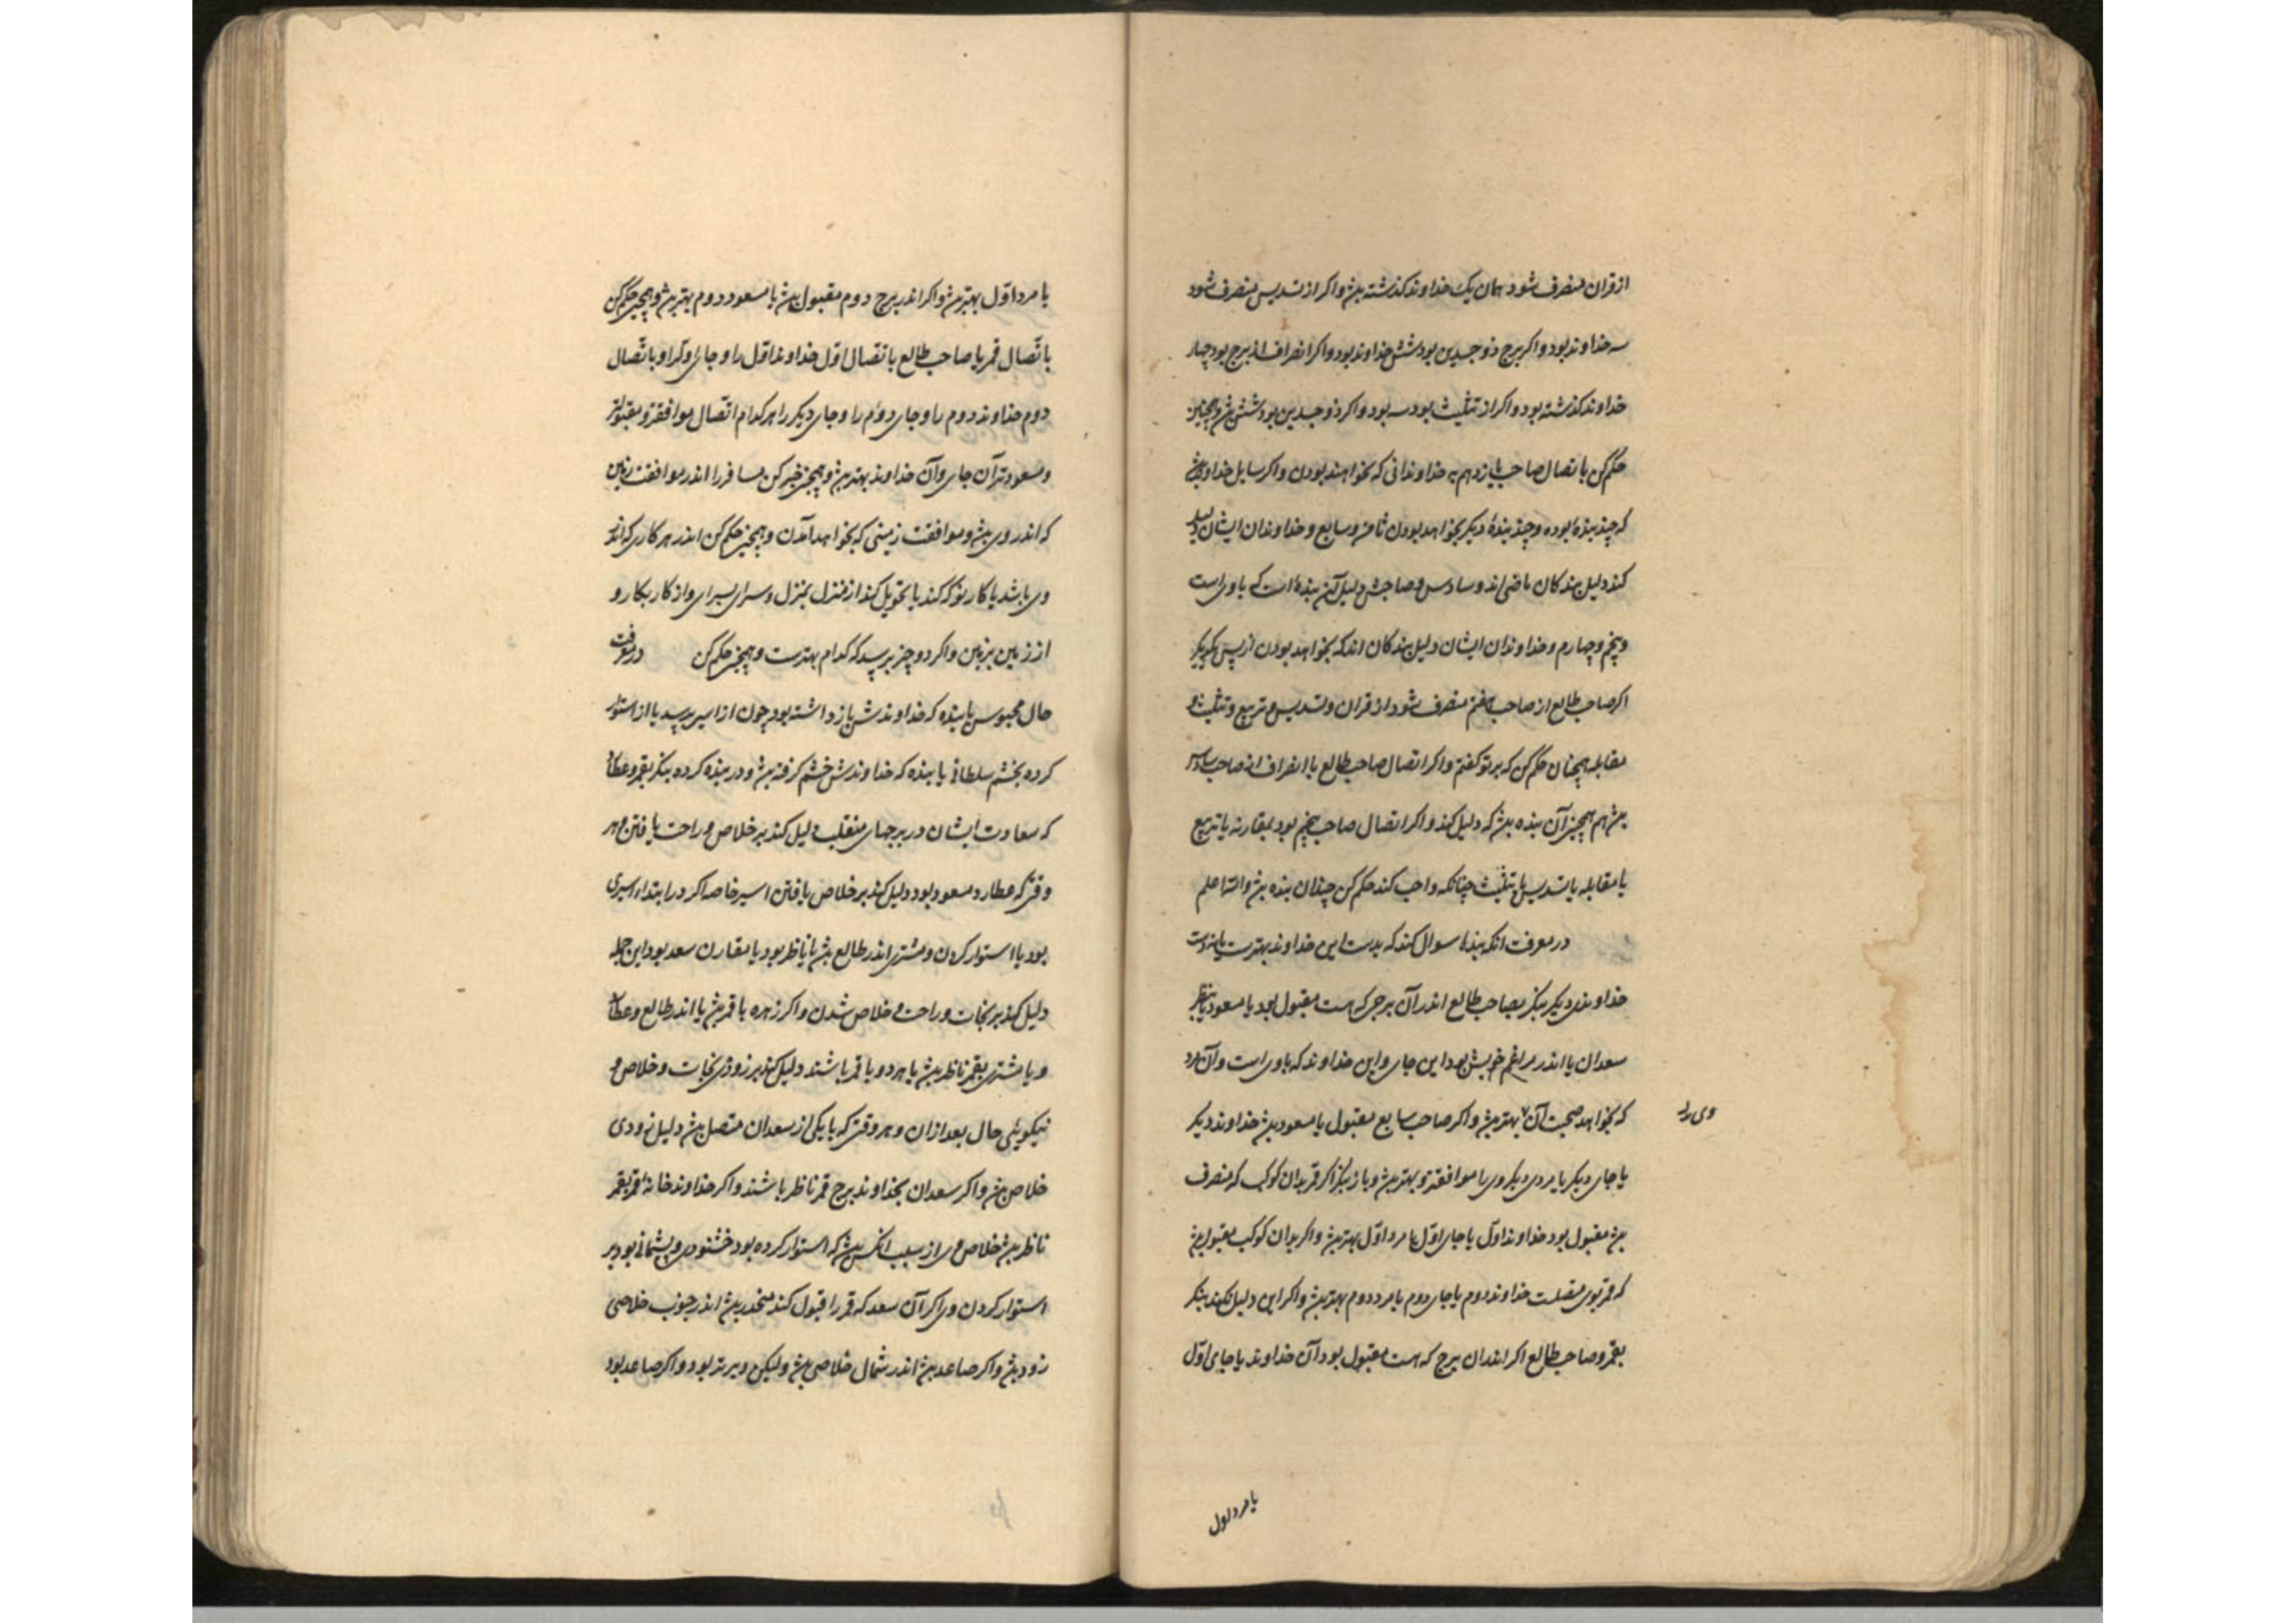 از قران منصرف شود همان یک خداوند کذشته بیش و اکر از تسدیس منصرف شود
سه خداوند بود و اکر برج ذو جسدین بود شش خداوند بود و اکر انصراف از برج بود چهار
خداوند کذشته بود و اکر از تثلیث بود سه بود و اکر ذو جسدین بود شش بیش و همچنین
حکم کن باتصال صاحب یازدهم به خداوندانی که بخواهند بودن و اکر سایل خداوند بیش
که چند بنده بوده و چند بندهٔ دیکر بخواهد بودن ثامن و سابع و خداوندان ایشان دلیل
کند دلیل بندکان ماضی اند و سادس و صاحبش دلیل آن بنده است که با وی است
و پنجم و چهارم و خداوندان ایشان دلیل بندکان اند که بخواهد بودن از پس یکدیکر
اکر صاحب طالع از صاحب هفتم منصرف شود از قران و تسدیس و تربیع و تثلیث و
مقابله همچنان حکم کن که برتو کفتم و اکر اتصال صاحب طالع یا انصراف از صاحب سادس
بیش هم همچنین آن بنده بیش که دلیل کند و اکر اتصال صاحب پنجم بود بمقارنه یا تربیع
یا مقابله یا تسدیس یا تثلیث چنانکه واجب کند حکم کن چندان بنده بیش والله اعلم
در معرفت انکه بندها سوال کند که بدست این خداوند بهترست یا بدست
خداوندی دیکر بنکر بصاحب طالع اندر آن برجی که هست مقبول بود یا مسعود یا بنظر
سعدان یا اندر مراغم خویش بود این جای و این خداوند که با وی است و آن مرد
که بخواهد صحبت آن بهتر بیش و اکر صاحب سابع مقبول یا مسعود بیش خداوند دیکر
وی را
یا جای دیکر یا مردی دیکر وی را موافقتر و بهتر بیش و باز بنکر اکر قمر بدان کوکب که منصرف
بیش مقبول بود خداوند اول یا جای اول یا مرد اول بهتر بیش و اکر بدان کوکب مقبول بیش
که قمر بوی متصلست خداوند دوم یا جای دوم یا مرد دوم بهتر بیش و اکر این دلیل نکند بنکر
بقمر و صاحب طالع اکر اندران برج که هست مقبول بود آن خداوند یا جای اول
یا مرد اول
یا مرد اول بهتر بیش و اکر اندر برج دوم مقبول بیش یا مسعود دوم بهتر بیش و همچنین حکم کن
باتصال قمر یا صاحب طالع باتصال اول خداوند اول را و جای و را و باتصال
دوم خداوند دوم را و جای دوم را و جای دیکر را هر کدام اتصال موافقتر و مقبولتر
و مسعودتر آن جای و آن خداوند بهتر بیش و همچنین خبر کن مسافر را اندر موافقت زمین
که اندر وی بیش و موافقت زمینی که بخواهد آمدن و همچنین حکم کن اندر هر کاری که اندر
وی باشد یا کار نو که کند یا تحویل کند از منزل بمنزل و سرای بسرای و از کار بکار و
از زمین بزمین و اکر دو چیز بپرسید که کدام بهترست و همچنین حکم کن در معرفت
حال محبوس یا بنده که خداوندش باز داشته بود چون از اسیر بپرسید یا از استوار
کرده بخشم سلطانی یا بنده که خداوندش خشم کرفته بیش و در بنده کرده بنکر بقمر و عطارد
که سعادت ایشان در برجهای منقلب دلیل کند بر خلاص و راحت یافتن و هر
وقتی که عطارد مسعود بود دلیل کند بر خلاص یافتن اسیر خاصه اکر در ابتداء اسیری
بود یا استوار کردن و مشتری اندر طالع بیش یا ناظر بود یا مقارن سعد بود این جمله
دلیل کند بر نجات و راحت و خلاص شدن و اکر زهره با قمر بیش یا اندر طالع و عطارد
و یا مشتری بقمر ناظر بیش یا هر دو با قمر باشند دلیل کند بر زودی نجات و خلاص و
نیکویئی حال بعد ازان و هر وقتی که با یکی از سعدان متصل بیش دلیل زودی
خلاص بیش و اکر سعدان بخداوند برج قمر ناظر باشند و اکر خداوند خانهٔ قمر بقمر
ناظر بیش خلاص وی از سبب انکس بیش که استوار کرده بود خشنودی و پشمانی بود بر
استوار کردن وی اکر آن سعد که قمر را قبول کند منحدر بیش اندر جنوب خلاصی
زود بیش و اکر صاعد بیش اندر شمال خلاصی بیش ولیکن دیرتر بود و اکر صاعد بود